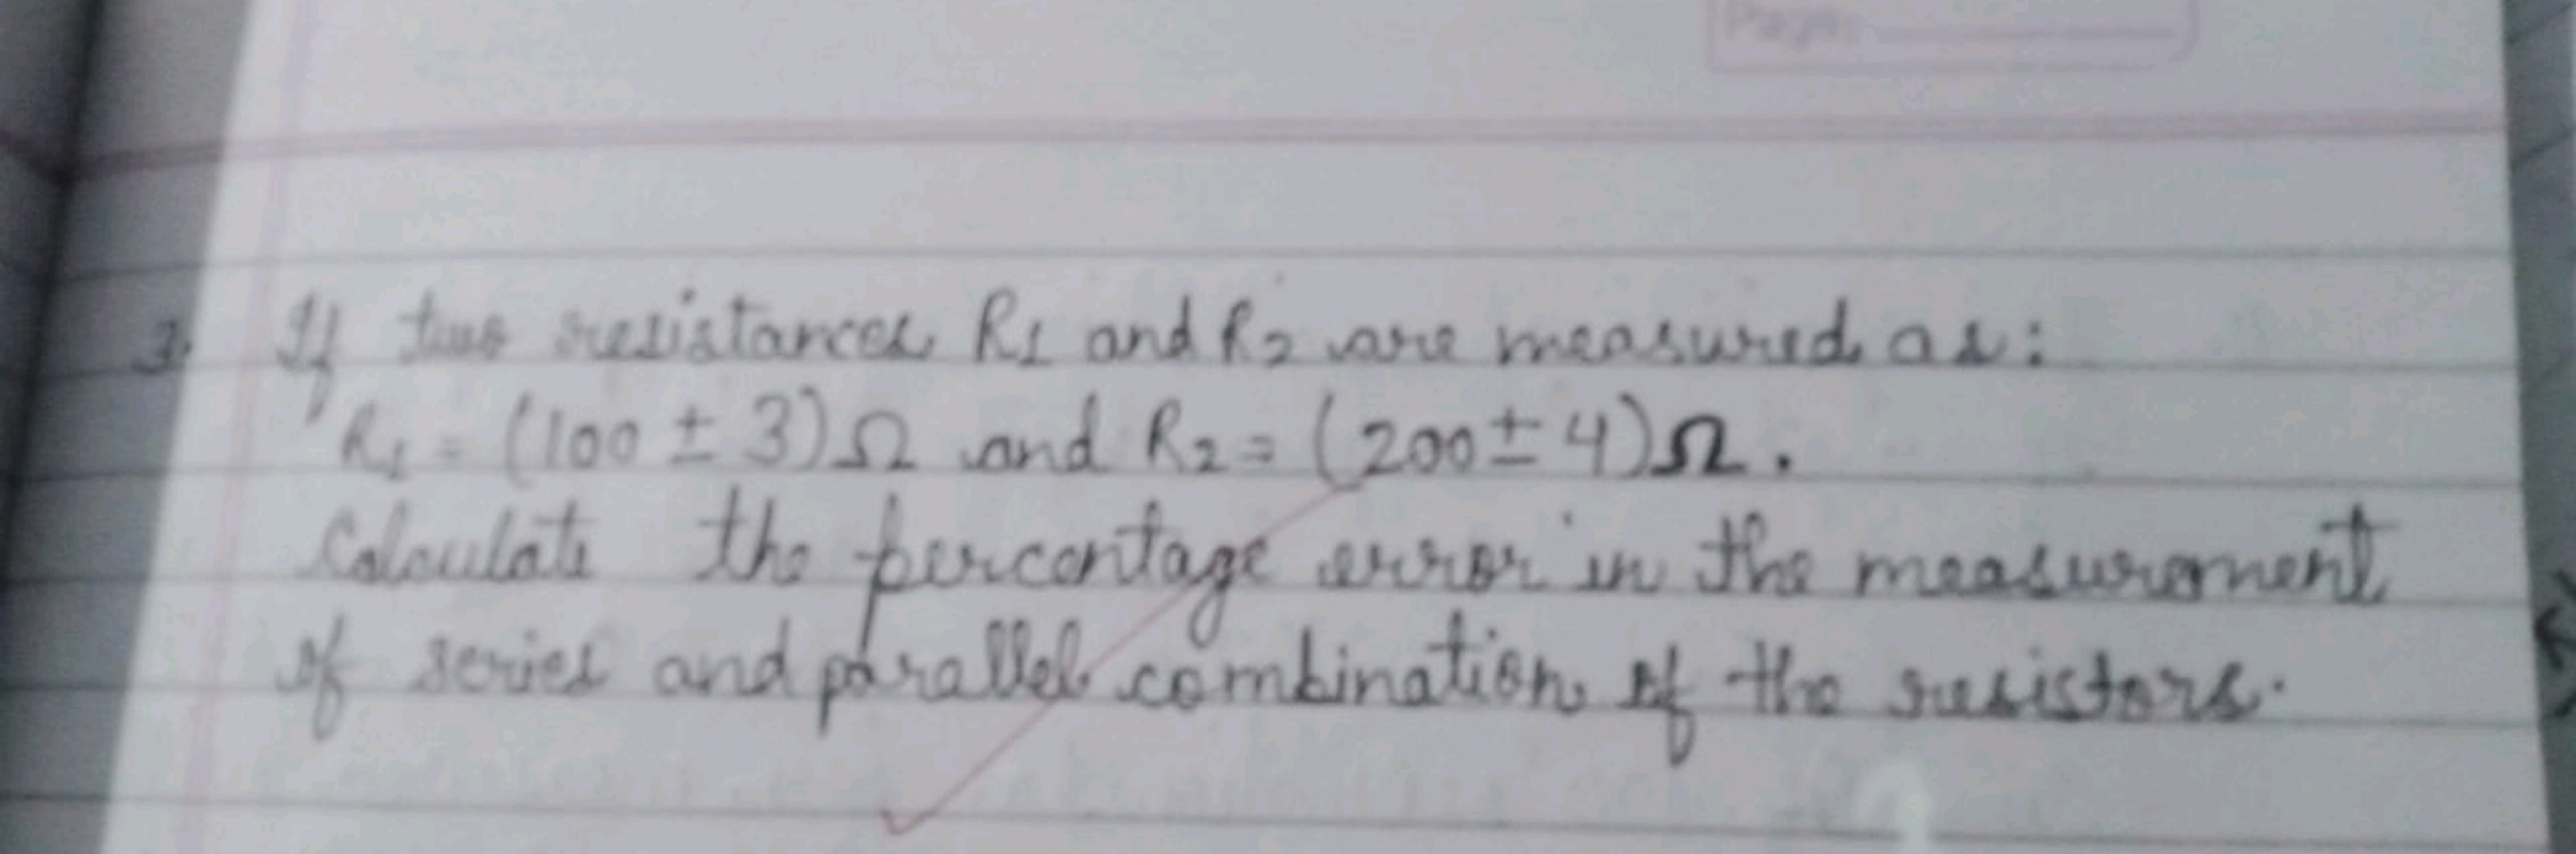 Page:
3. If two resistances R1 and R2 are measured as:
R1 = (100 ± 3)Ω and R2 = (200 ± 4)Ω.
Calculate the percentage error in the measurement
of series and parallel combination of the resistors.